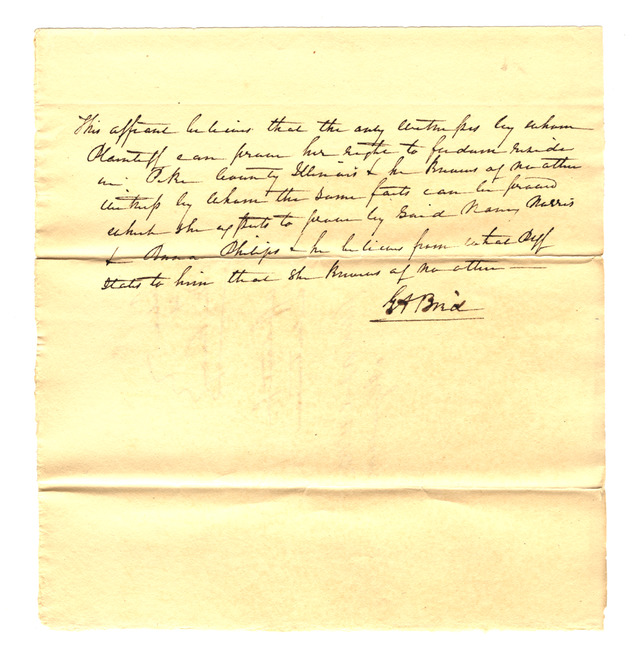 This affiant believes that the only witnesses by whom
Plaintiff can prove her right to freedom reside
in Pike County Illinois & he knows of no other
witness by whom the same facts can be proved
which she expects to prove by said Nancy Norris
& Anna Philips & he believes from what Plff
states to him that she knows of no other —
G A Bird